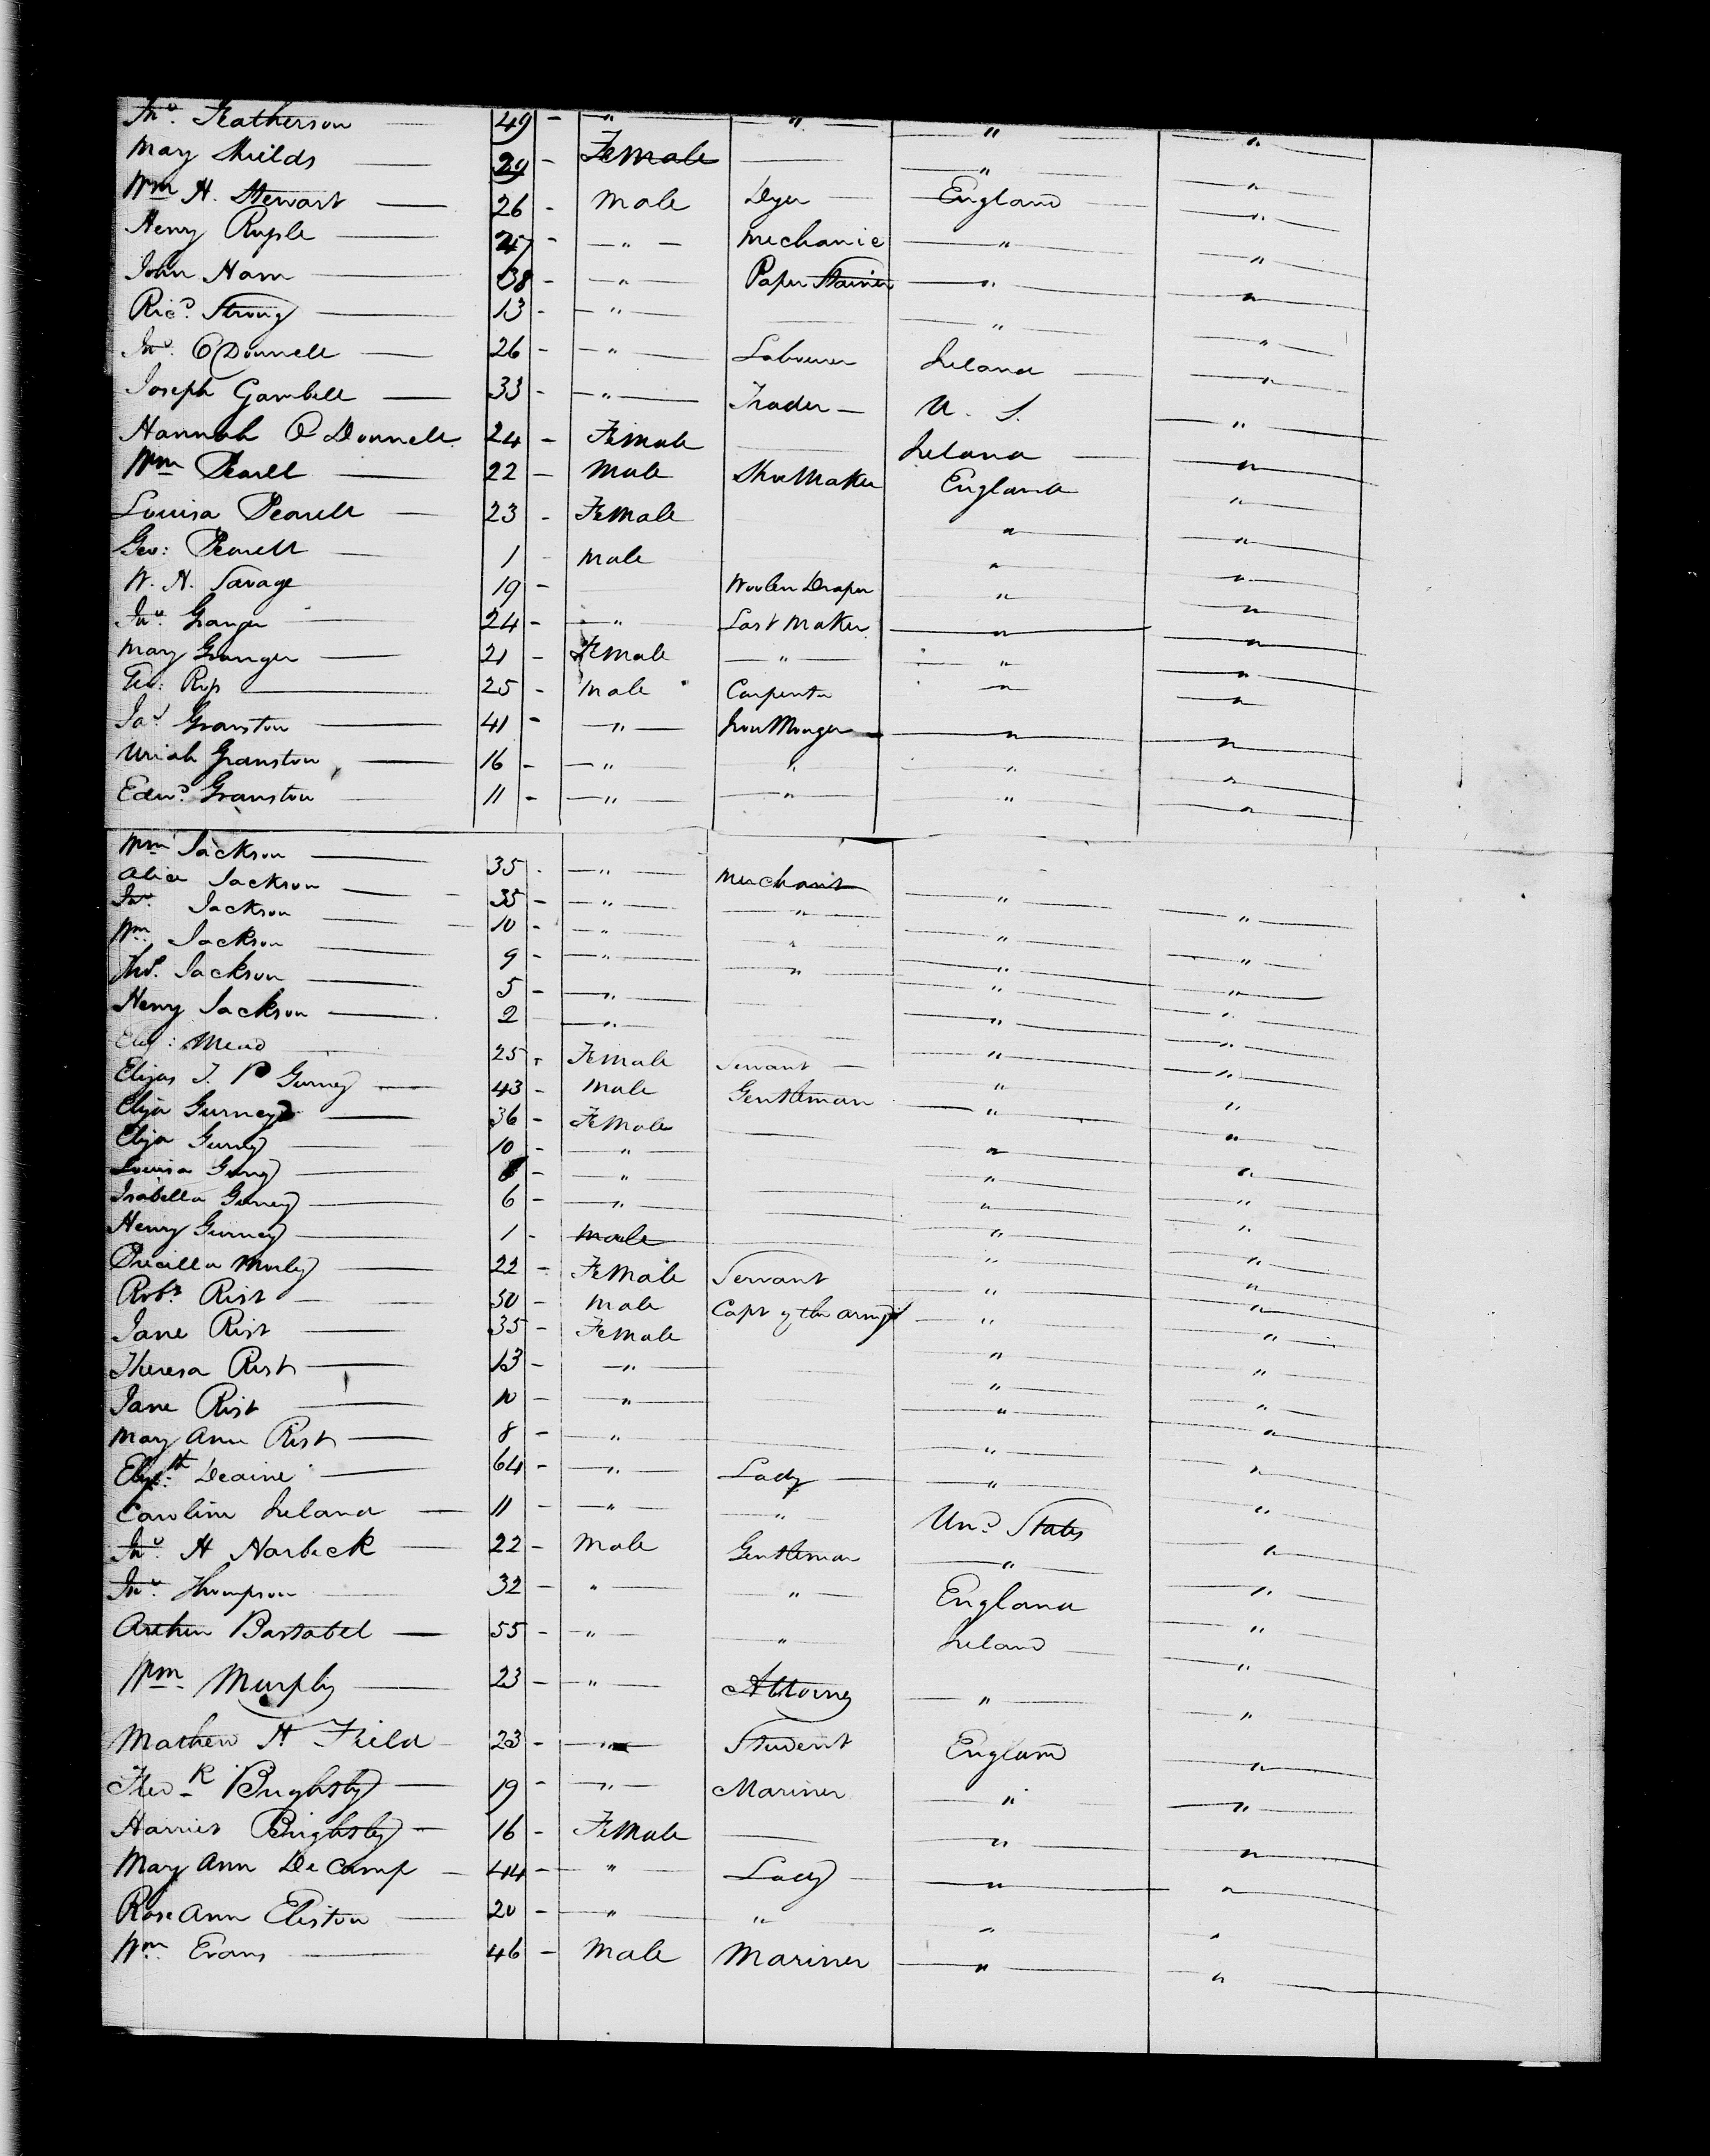 Jno. Featherson — 49 - " " " "
Mary Shields — 29 - Female — " "
Wm H. Stewart — 26 - Male Dyer England "
Henry Ruple — 27 - " Mechanic " "
John Ham — 38 - " Paper Stainer " "
Ricd. Strong — 13 - " — " "
Jno. O'Donnell — 26 - " Labourer Ireland "
Joseph Gambell — 33 - " Trader U. S. "
Hannah O Donnell 24 - Female — Ireland "
Wm Pearll — 22 - Male Shoe Maker England "
Louisa Pearell — 23 - Female " "
Geo: Pearell — 1 - Male " "
W. H. Savage 19 - — Woolen Draper " "
Jno. Granger — 24 - " Last Maker " "
Mary Granger — 21 - Female " " "
Male Carpenter " "
25 -
Jas. Granston — 41 - " Iron Monger " "
Uriah Granston — 16 - " " " "
Edwd. Granston — 11 - " " " "
Wm Jackson — 35 - " Merchant " "
Alice Jackson — 35 - " " " "
Jno. Jackson — 10 - " " " "
Wm Jackson — 9 - " " " "
Thos. Jackson — 5 - " " "
Henry Jackson — 2 " " "
Mead 25 - Female Servant — " "
Elijas J. P Gurney — 43 - Male Gentleman " "
Eliza Gurney — 36 - Female — " "
Eliza Gurney — 10 - " " "
Louisa Gurney — - " " "
Isabella Gurney — 6 - " " "
Henry Gurney — 1 - Male " "
Priscilla Morley — 22 - Female Servant " "
Robt. Rist — 30 - Male Capt of the Army " "
Jane Rist — 35 - Female " "
Theresa Rist — 13 - " " "
Jane Rist — 10 - " " "
Mary Ann Rist — 8 - " " "
Elizth. Deaine — 64 - " Lady — " "
Caroline Ireland — 11 - " " Und. States "
Jno. H Norbeck — 22 - Male Gentleman " "
Jno. Thompson — 32 - " " England "
Arthur Bastabel — 55 - " " Ireland "
Wm. Murphy — 23 - " Attorney " "
Mathew H. Field — 23 - " Student England "
Fredk Bughsby — 19 - " Mariner " "
Harriet Bughsby — 16 - Female — " "
Mary Ann De Camp — 44 - " Lady — " "
Rose Ann Eliston — 20 - " " " "
Wm. Evans — 46 - Male Mariner " "